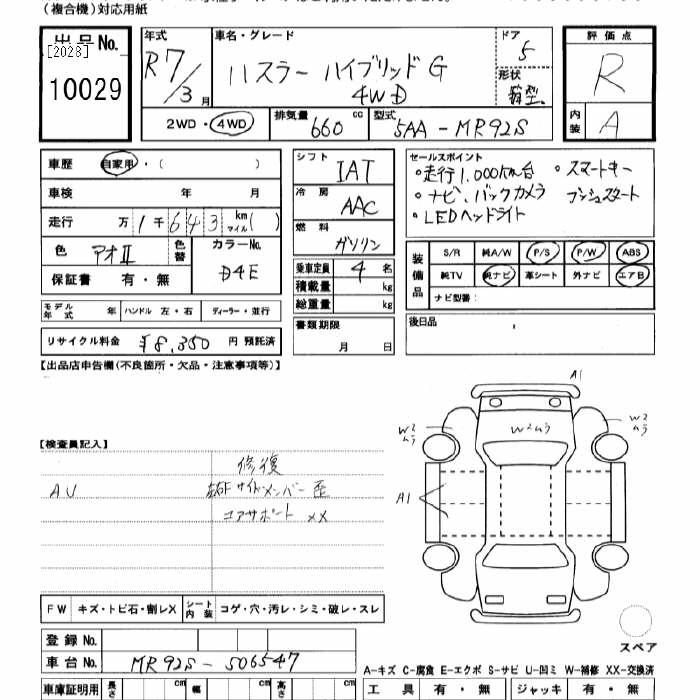 (複合機)対応用紙
出品No.
[2028]
10029
年式
R7/3月
車名・グレード
ハスラー ハイブリッドG
4WD
ドア
5
形状
箱型
評価点
R
内装
A
2WD・4WD
排気量 660 cc
型式 5AA-MR92S
車歴 自家用・( )
車検 年 月
走行 万 1千643 km マイル( )
色 アオⅡ 色替
カラーNo. D4E
保証書 有・無
モデル年式 年 ハンドル 左・右 ディーラー・並行
リサイクル料金 ¥8,350 円 預託済
シフト
IAT
冷房
AAC
燃料
ガソリン
乗車定員 4 名
積載量 kg
総重量 kg
書類期限
月 日
セールスポイント
・走行1,000km台 ・スマートキー
・ナビ、バックカメラ プッシュスタート
・LEDヘッドライト
装備品
S/R 純A/W P/S P/W ABS
純TV 純ナビ 革シート 外ナビ エアB
ナビ型番:
後日品
【出品店申告欄(不良箇所・欠品・注意事項等)】
【検査員記入】
修復
AU
サイドメンバー歪
コアサポート XX
A1
W2ムラ
W2ムラ
W2ムラ
A1
スペア
FW キズ・トビ石・割レX シート内装 コゲ・穴・汚レ・シミ・破レ・スレ
登録No.
車台No. MR92S-506547
車庫証明用 長さ cm 幅 cm 高さ cm
A-キズ C-腐食 E-エクボ S-サビ U-凹ミ W-補修 XX-交換済
工具 有・無 ジャッキ 有・無